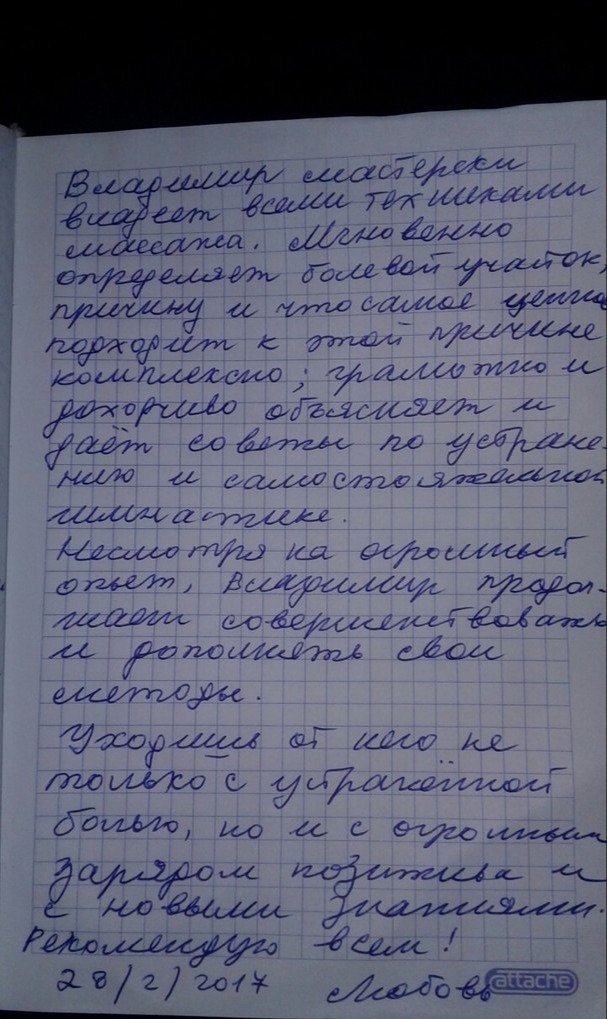 Владимир мастерски
владеет всеми техниками
массажа. Мгновенно
определяет болевой участок,
причину и что самое ценное
подходит к этой причине
комплексно; грамотно и
доходчиво объясняет и
даёт советы по устране-
нию и самостоятельной
гимнастике.
Несмотря на огромный
опыт, Владимир продол-
жает совершенствовать
и дополнять свои
методы.
Уходишь от него не
только с устранённой
болью, но и с огромным
зарядом позитива и
с новыми знаниями.
Рекомендую всем!
28/2/2017 Любовь
attache